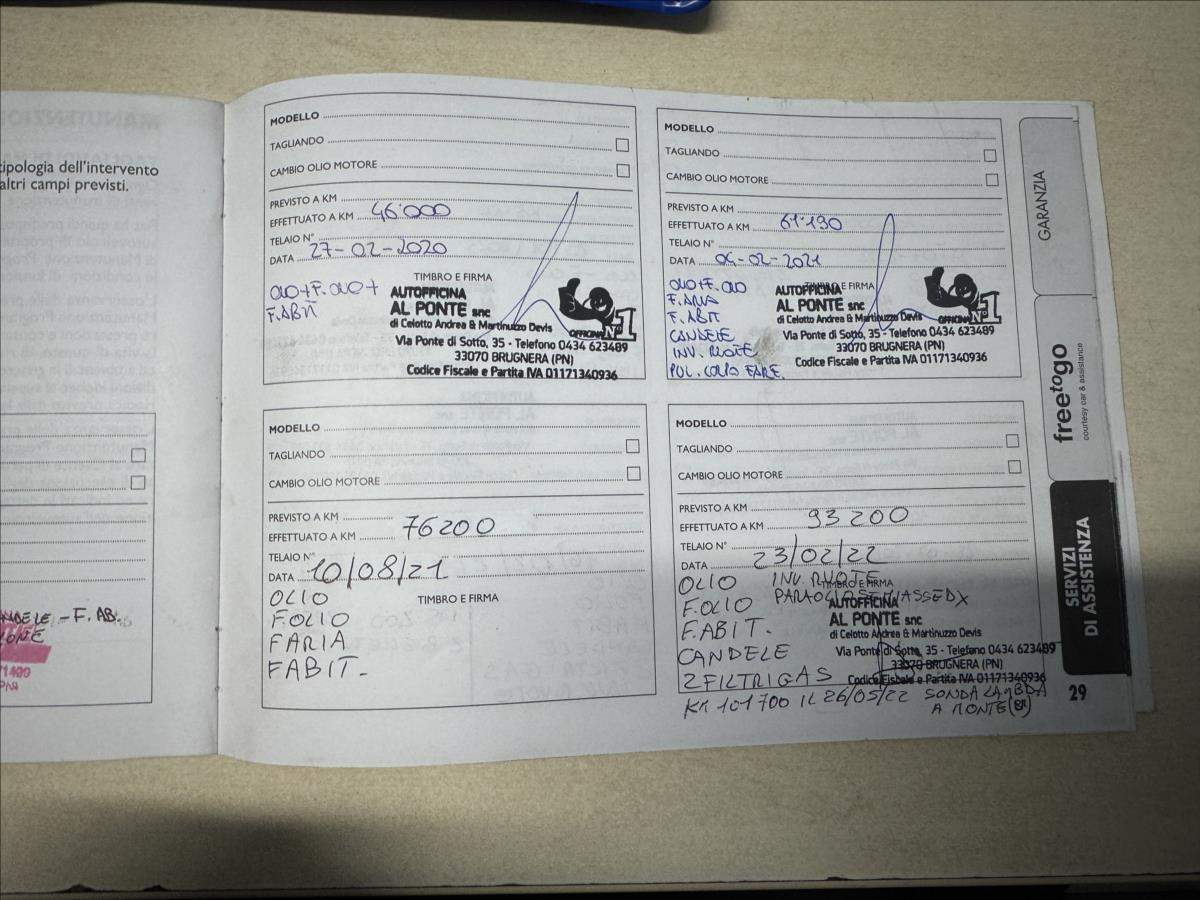 tipologia dell'intervento
altri campi previsti.
NDELE - F. AB.
MODELLO
TAGLIANDO
CAMBIO OLIO MOTORE
PREVISTO A KM
EFFETTUATO A KM 46'000
TELAIO N°
DATA 27-02-2020
TIMBRO E FIRMA
OLIO+F.OLIO+
F.ABIT
AUTOFFICINA
AL PONTE snc
di Celotto Andrea & Martinuzzo Devis
OFFICINA N°1
Via Ponte di Sotto, 35 - Telefono 0434 623489
33070 BRUGNERA (PN)
Codice Fiscale e Partita IVA 01171340936
MODELLO
TAGLIANDO
CAMBIO OLIO MOTORE
PREVISTO A KM
EFFETTUATO A KM 61'190
TELAIO N°
DATA 04-02-2021
TIMBRO E FIRMA
OLIO+F.OLIO
F.ARIA
F.ABIT
CANDELE
INV. RUOTE
PUL. CORPO FARF.
AUTOFFICINA
AL PONTE snc
di Celotto Andrea & Martinuzzo Devis
OFFICINA N°1
Via Ponte di Sotto, 35 - Telefono 0434 623489
33070 BRUGNERA (PN)
Codice Fiscale e Partita IVA 01171340936
MODELLO
TAGLIANDO
CAMBIO OLIO MOTORE
PREVISTO A KM
EFFETTUATO A KM 76200
TELAIO N°
DATA 10/08/21
TIMBRO E FIRMA
OLIO
F.OLIO
FARIA
FABIT.
MODELLO
TAGLIANDO
CAMBIO OLIO MOTORE
PREVISTO A KM
EFFETTUATO A KM 93200
TELAIO N°
DATA 23/02/22
TIMBRO E FIRMA
OLIO INV. RUOTE
F.OLIO
F.ABIT.
CANDELE
2 FILTRI GAS
AUTOFFICINA
AL PONTE snc
di Celotto Andrea & Martinuzzo Devis
Via Ponte di Sotto, 35 - Telefono 0434 623489
33070 BRUGNERA (PN)
Codice Fiscale e Partita IVA 01171340936
KM 101700 IL 26/05/22 SONDA LAMBDA
A MONTE
GARANZIA
freetogo
courtesy car & assistance
SERVIZI
DI ASSISTENZA
29